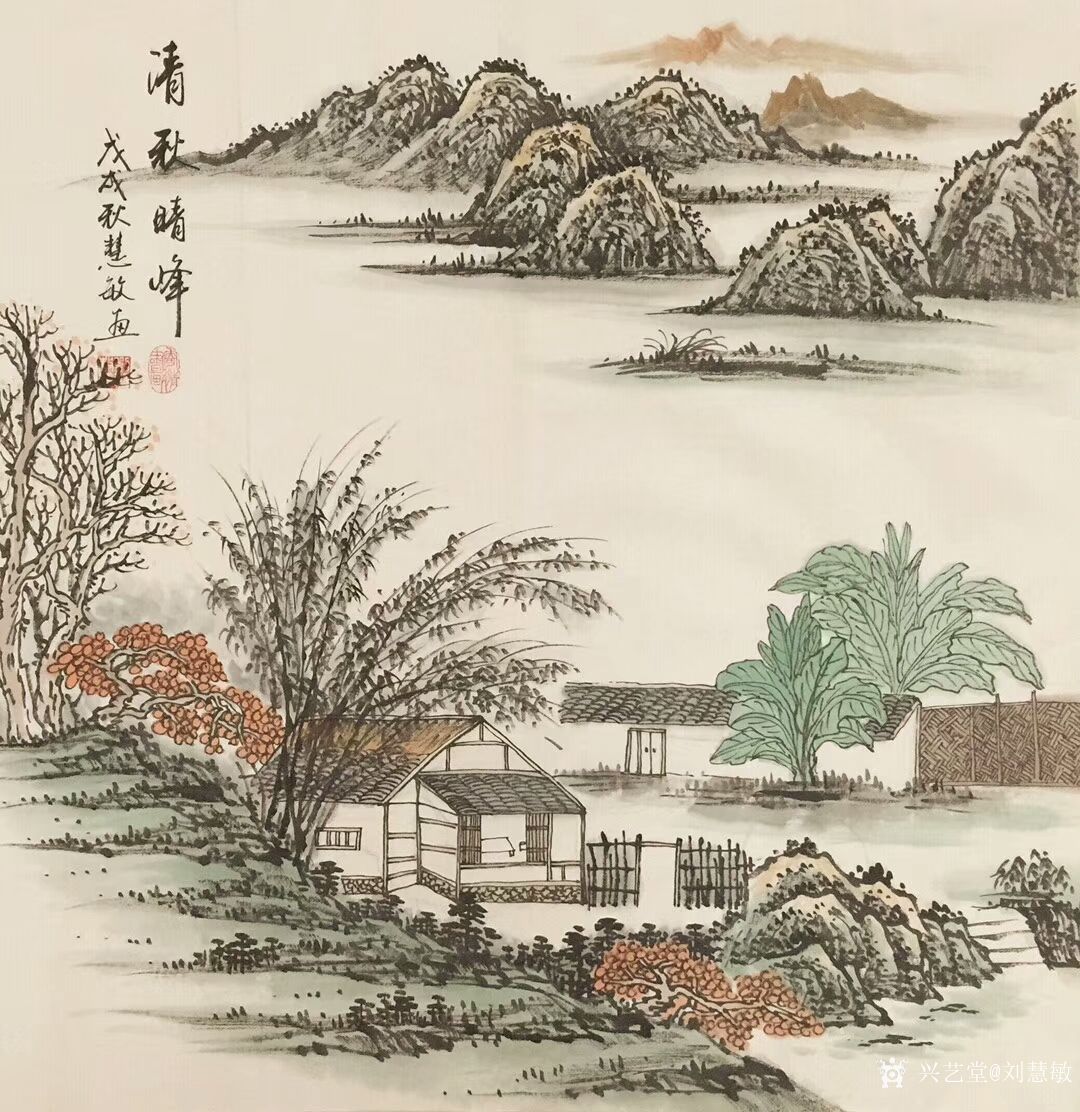 清秋晴峰
戊戌秋慧敏画
兴艺堂@刘慧敏